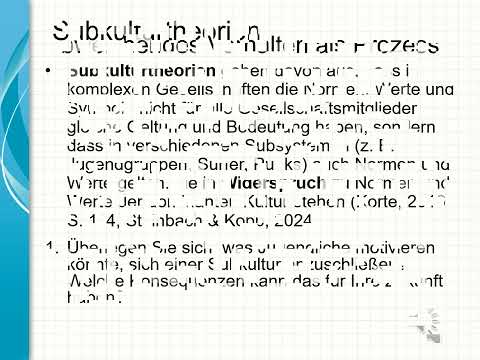 Subkulturtheorien
Verhalten als Prozess
• Subkulturtheorien gehen davon aus, dass in
komplexen Gesellschaften die Normen, Werte und
Symbole nicht für alle Gesellschaftsmitglieder
gleiche Geltung und Bedeutung haben, sondern
dass in verschiedenen Subsystemen (z. B.
Jugendgruppen, Surfer, Punks) auch Normen und
Werte gelten, die in Widerspruch zu Normen und
Werte der dominanten Kultur stehen (Korte,
S. Steinbach & Kopp, 2024
1. Überlegen Sie sich, was Jugendliche motivieren
könnte, sich einer Subkultur anzuschließen.
Welche Konsequenzen kann das für Ihre Zukunft
haben?